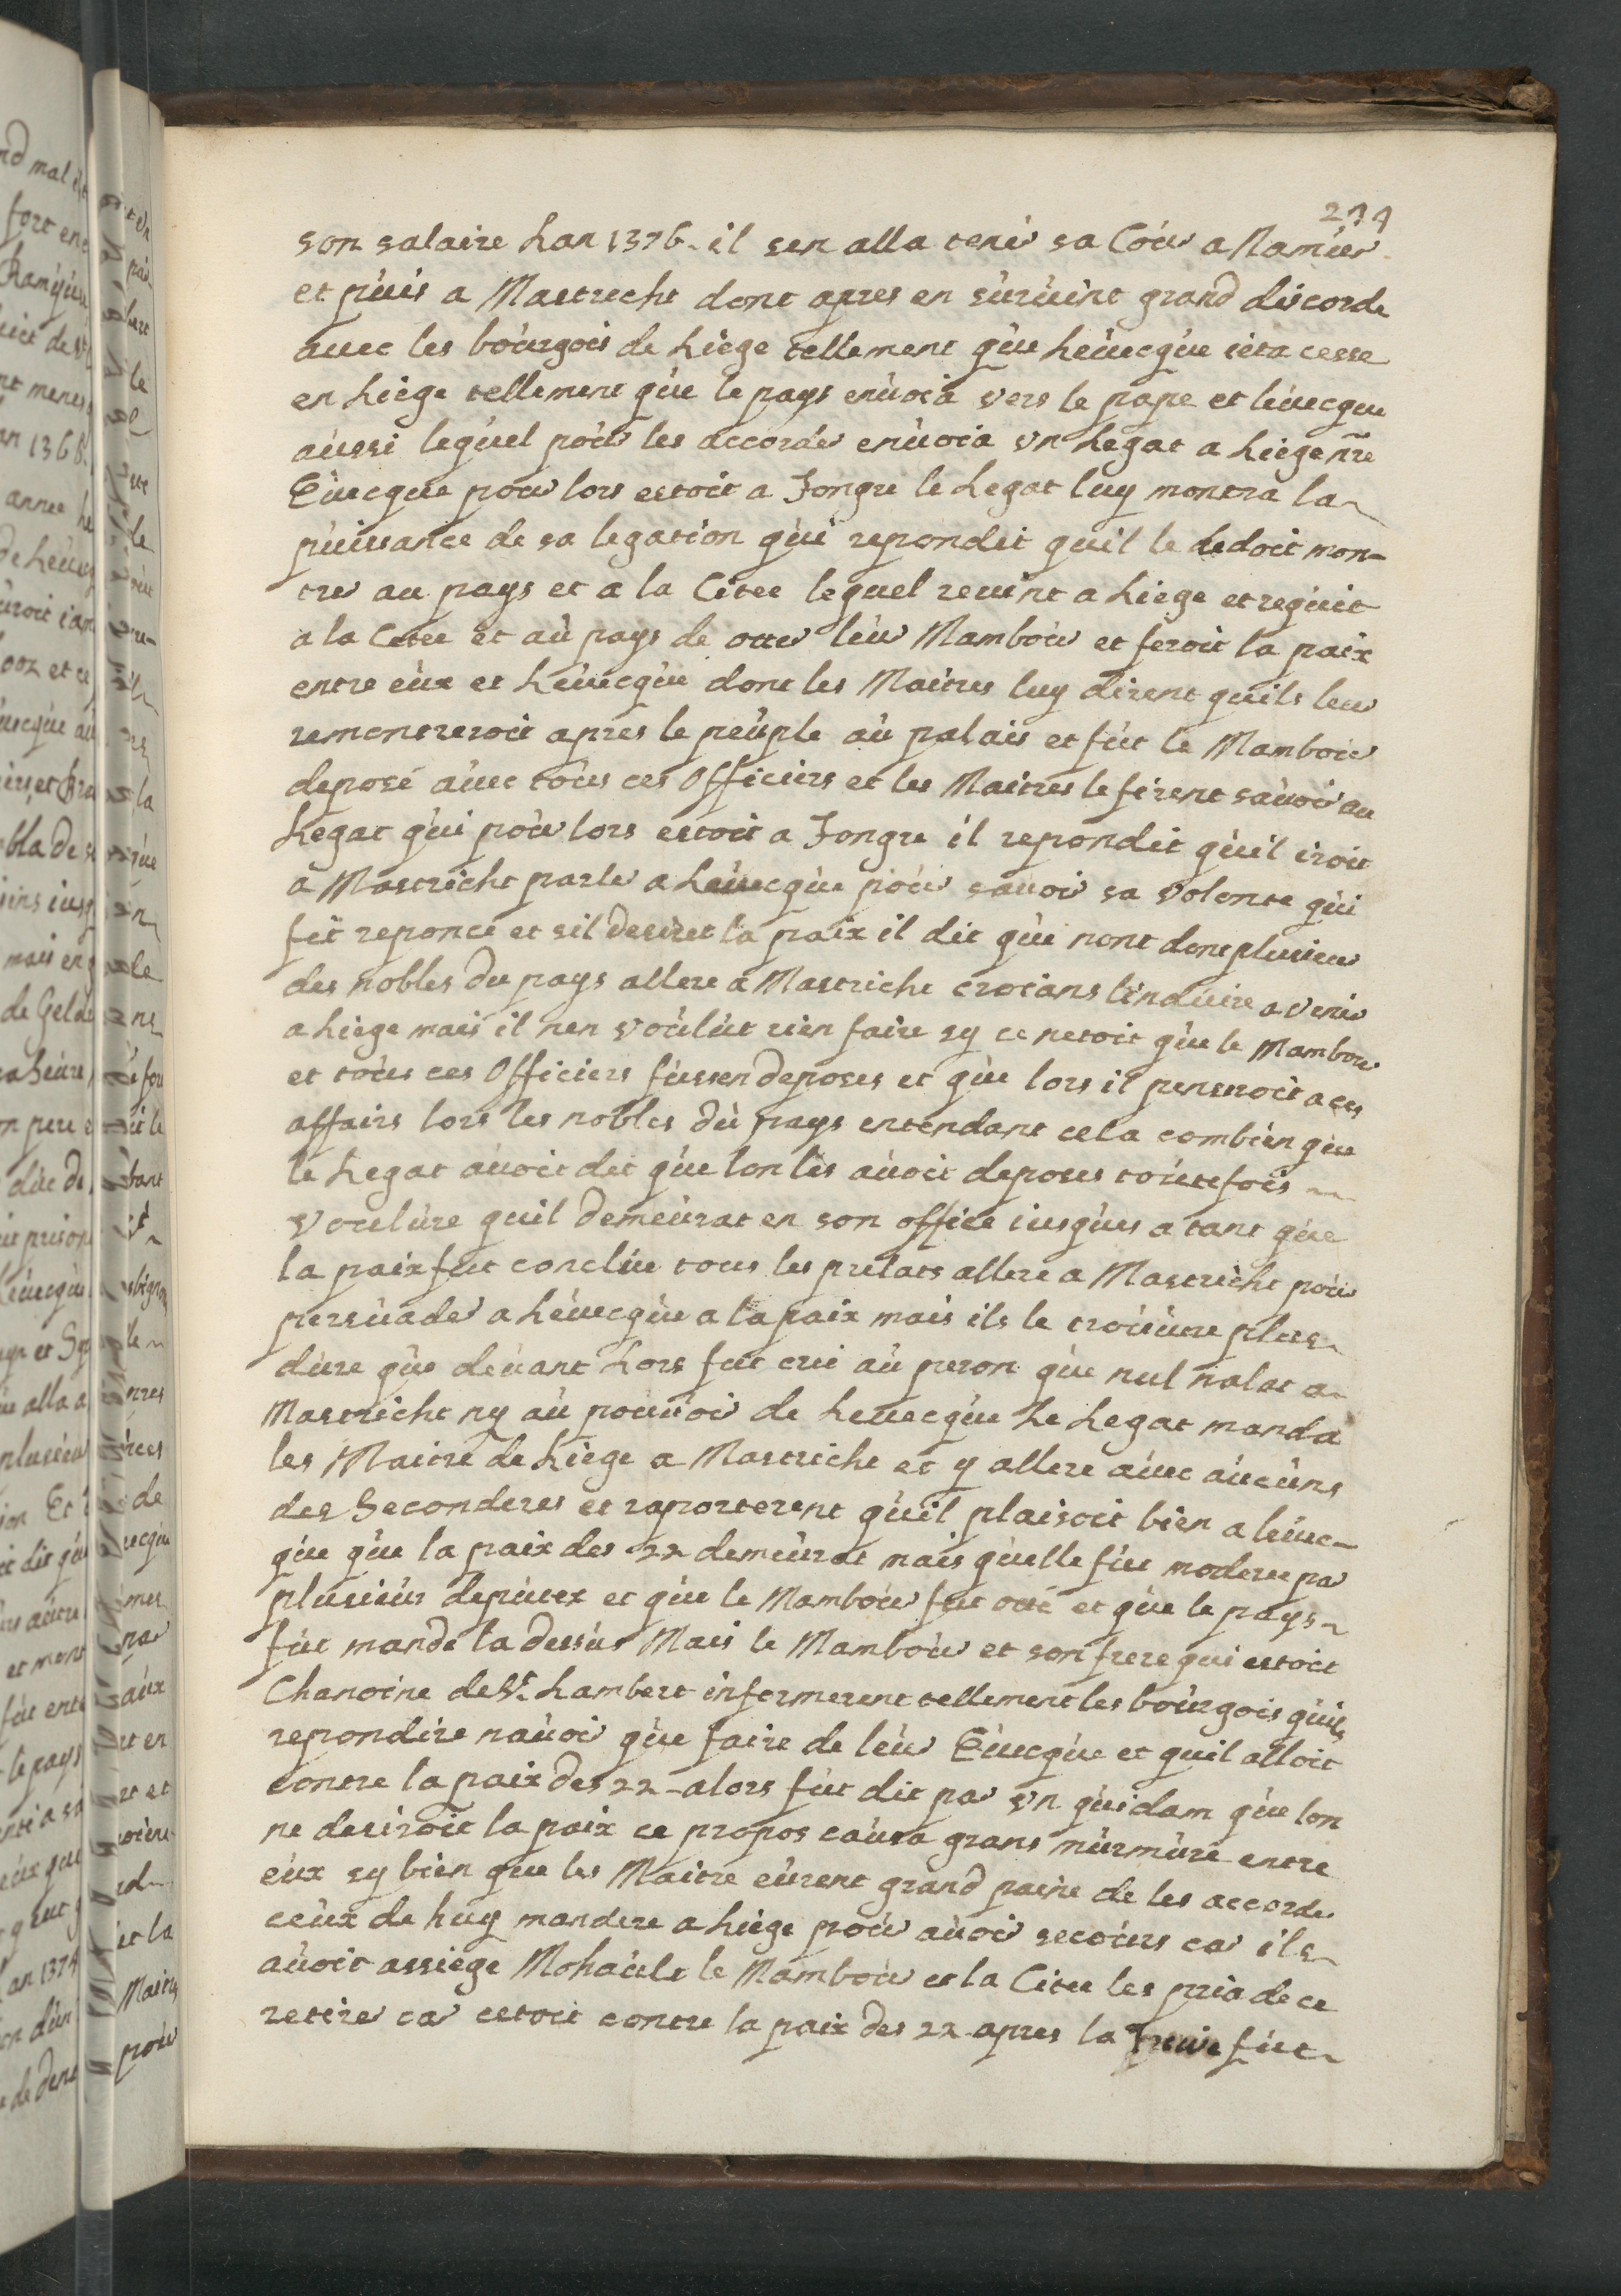 274
son salaire Lan 1376. il sen alla tenir sa Coúr a Namúr
et púis a Mastrecht dont apres en súrúint grand discorde
auec les boúrgois de Liège tellement qúe Léuecqúe ieta cesse
en Liège tellement qúe le pays enúoia vers le pape et léuecque
aússi leqúel poúr les accorder enúoia vn Legat a Liège nre
Eúecque pour lors estoit a Tongre le Legat luy montra la
púissance de sa legation qúi repondit quil le dedoit mon-
trer au pays et a la Citee lequel reuint a Liège et reqúit
a la Citee et aú pays de otter léur Mamboúr et feroit la paix
entre eúx et Léuecqúe dont les Maitres luy dirent quils leur
remontreroit apres le peúple aú palais et fút le Mambour
deposé aúec toús ces Officiers et les Maitres le firent sauoir au
Legat qúi poúr lors estoit a Tongre il repondit qúil iroit
a Mastricht parler a Léuecqúe poúr sauoir sa volonte qúi
fit reponce et sil desiret la paix il dit qúe nont dont plusieur
des nobles du pays allere a Mastricht croians linduire a venir
a Liège mais il nen voúlút rien faire sy ce netoit qúe le Mambour
et toús ces Officiers fússen deposes et qúe lors il penseroit a ces
affairs lors les nobles dú pays entendant cela combien qúe
le Legat aúoit dit qúe lon les aúoit deposes toútefois
voulúre quil demeúrat en son office iusqúes a tant qúe
la paix fut conclúe tous les prelats allere a Mastricht poúr
persúader a Léuecqúe a la paix mais ils le troúúere plus
dúre qúe deúant Lors fut crie aú peron qúe nul nalat a
Mastricht ny aú pouúoir de Leuecqúe Le Legat manda
les Maitre de Liège a Mastricht et y allere aúec aúcúns
des Seconderes et raporterent qúil plaisoit bien a léuec-
qúe qúe la paix des 22 demeúrat mais qúelle fút moderee par
plusieúr depútez et qúe le Mamboúr fut otté et qúe le pays
fút mandé la dessús Mais le Mamboúr et son frere qui estoit
Chanoine de St. Lambert informerent tellement les boúrgois qúils
repondire naúoir qúe faire de léur Eúecqúe et quil alloit
contre la paix des 22 - alors fút dit par vn qúidam qúe lon
ne desiroit la paix ce propos caúsa grans múrmúre entre
eúx sy bien que les Maitre eúrent grand paine de les accorder
ceúx de huy mandere a Liège poúr aúoir secoúrs car ils
aúoit assiege Mohaúlt le Mamboúr et la Citee les pria de ce
retirer car cetoit contre la paix des 22 - apres la Treúe fút